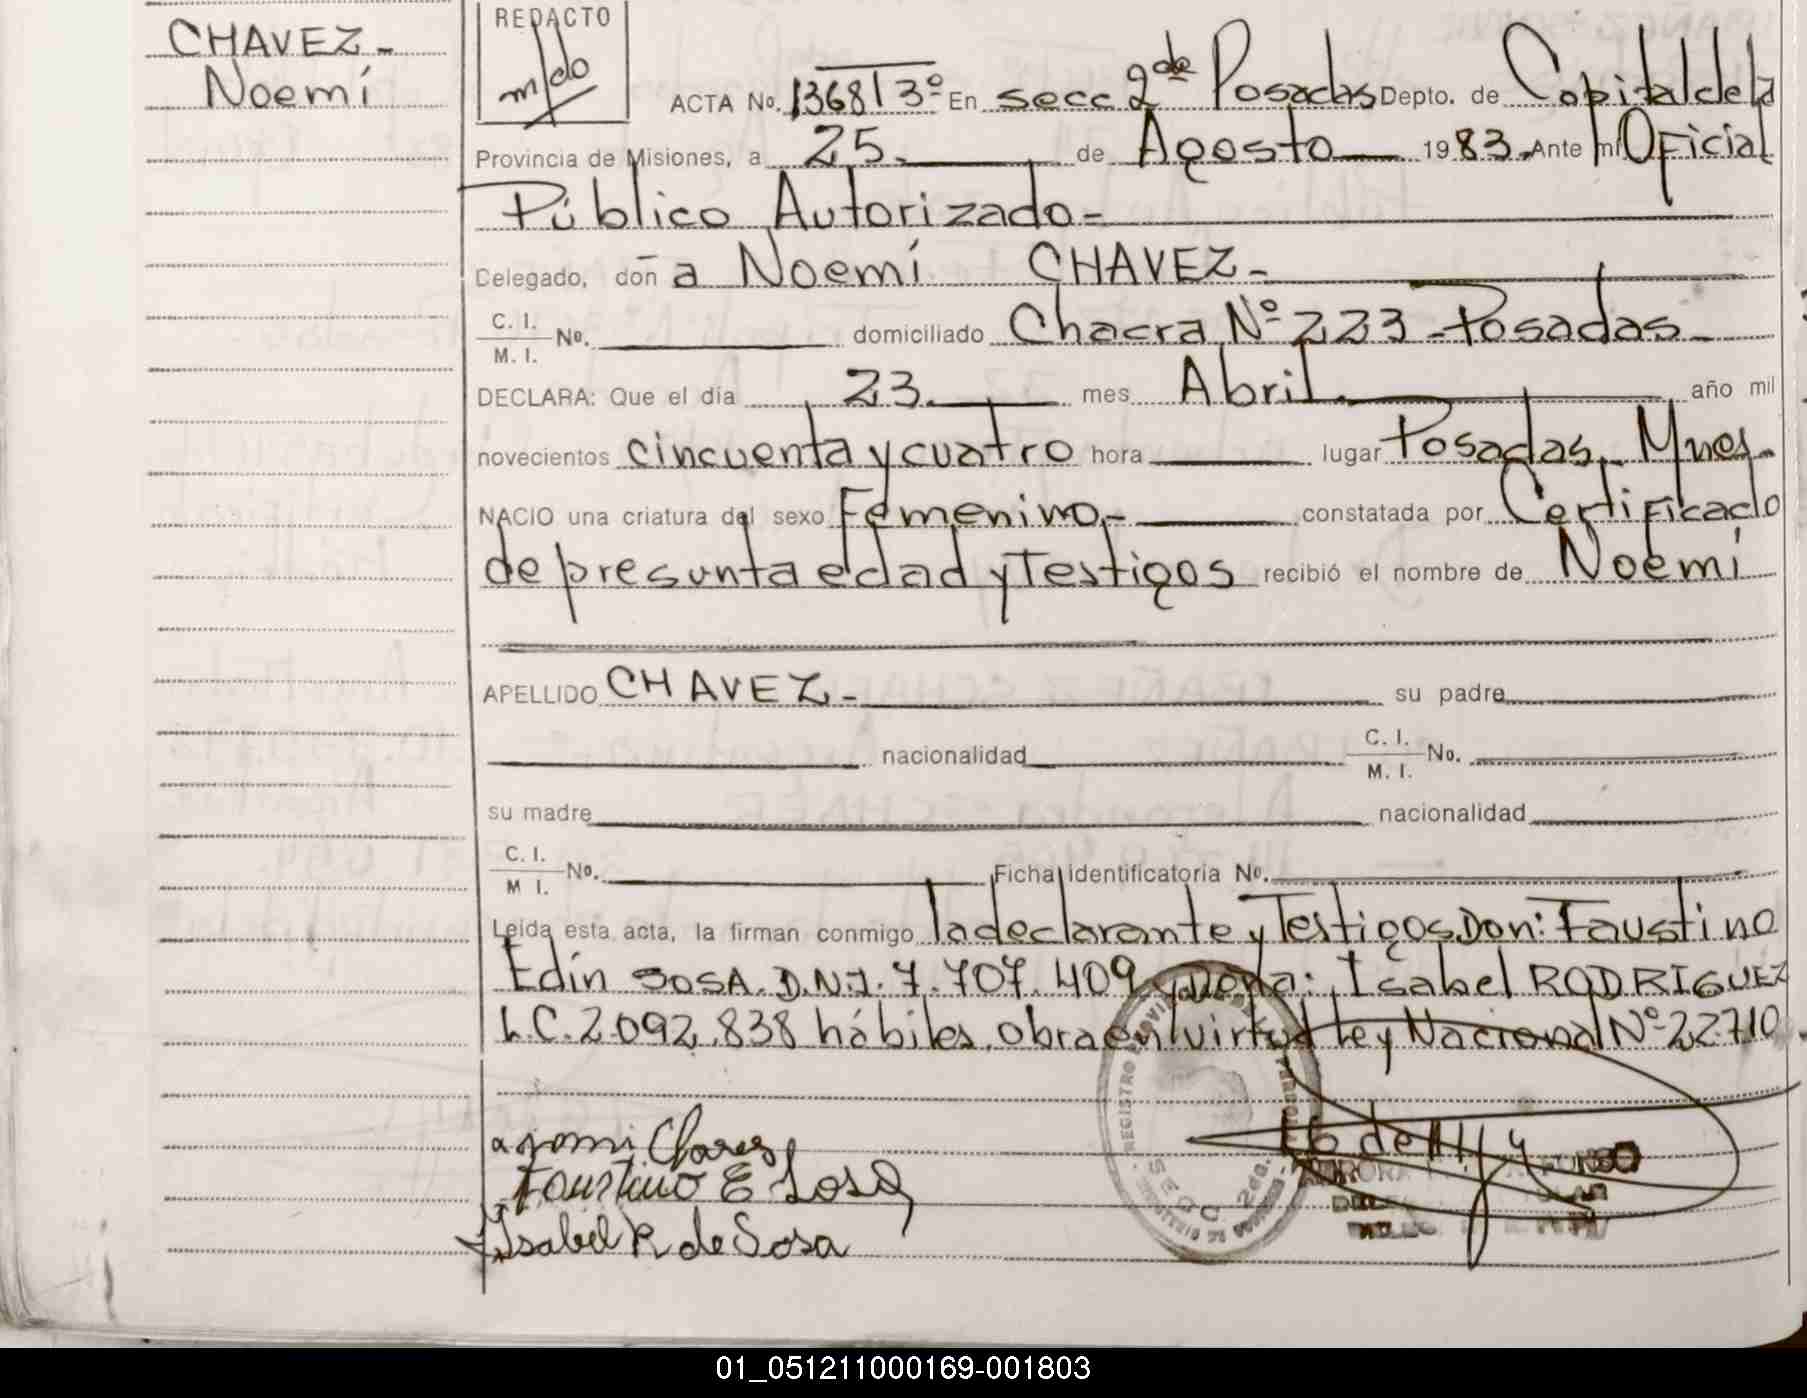 CHAVEZ-
Noemí
REDACTO
m/do
ACTA No. 1368 T 3º En secc 2da Posadas Depto. de Capital de la
Provincia de Misiones, a 25. de Agosto 1983. Ante mí Oficial
Público Autorizado=
Celegado, doña Noemí CHAVEZ-
C. I.
M. I. No. domiciliado Chacra Nº 223 - Posadas-
DECLARA: Que el día 23. mes Abril. año mil
novecientos cincuenta y cuatro hora lugar Posadas, Mnes.
NACIO una criatura del sexo Femenino.- constatada por Certificado
de presunta edad y Testigos recibió el nombre de Noemí
APELLIDO CHAVEZ- su padre
nacionalidad C. I.
M. I. No.
su madre nacionalidad
C. I.
M I. No. Ficha identificatoria No.
Leída esta acta, la firman conmigo la declarante y Testigos Don: Faustino
Edín SOSA. D.N.I. 7.707.409 y Doña: Isabel RODRIGUEZ
L.C. 2.092.838 hábiles. obra en virtud Ley Nacional Nº 22.710.
Faustino E Sosa
Isabel R de Sosa
REGISTRO
SECC. 2da.
01_051211000169-001803